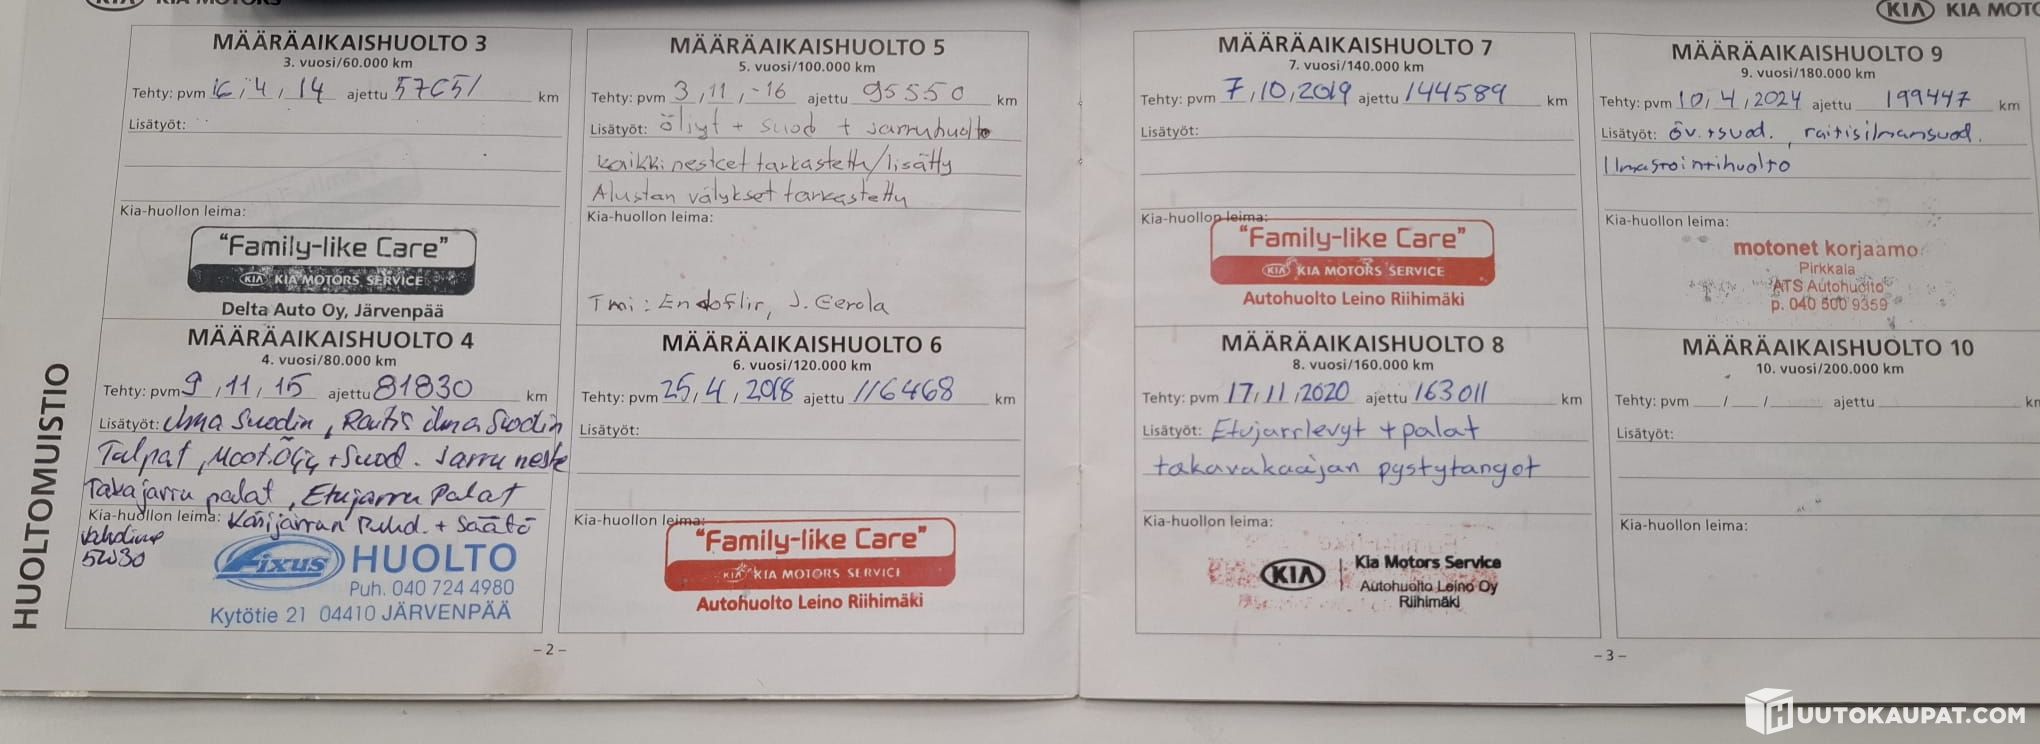 KIA KIA MOTORS
HUOLTOMUISTIO
MÄÄRÄAIKAISHUOLTO 3
3. vuosi/60.000 km
Tehty: pvm 16/4/14 ajettu 57651 km
Lisätyöt:
Kia-huollon leima:
"Family-like Care"
KIA KIA MOTORS SERVICE
Delta Auto Oy, Järvenpää
MÄÄRÄAIKAISHUOLTO 4
4. vuosi/80.000 km
Tehty: pvm 9/11/15 ajettu 81830 km
Lisätyöt: Ilma Suodin, Raitis ilma Suodin
Talpat, Moot.Öljy + Suod. Jarru neste
Takajarru palat, Etujarru Palat
Kia-huollon leima: Käsijarrun Puhd. + Säätö
5W30
Fixus HUOLTO
Puh. 040 724 4980
Kytötie 21 04410 JÄRVENPÄÄ
MÄÄRÄAIKAISHUOLTO 5
5. vuosi/100.000 km
Tehty: pvm 3/11/-16 ajettu 95550 km
Lisätyöt: öljyt + suod + jarruhuolto
kaikki nesteet tarkastettu/lisätty
Alustan välykset tarkastettu
Kia-huollon leima:
Tmi: Endoflir, J. Eerola
MÄÄRÄAIKAISHUOLTO 6
6. vuosi/120.000 km
Tehty: pvm 25/4/2018 ajettu 116468 km
Lisätyöt:
Kia-huollon leima:
"Family-like Care"
KIA KIA MOTORS SERVICE
Autohuolto Leino Riihimäki
- 2 -
KIA KIA MOTO
MÄÄRÄAIKAISHUOLTO 7
7. vuosi/140.000 km
Tehty: pvm 7/10/2019 ajettu 144589 km
Lisätyöt:
Kia-huollon leima:
"Family-like Care"
KIA KIA MOTORS SERVICE
Autohuolto Leino Riihimäki
MÄÄRÄAIKAISHUOLTO 8
8. vuosi/160.000 km
Tehty: pvm 17/11/2020 ajettu 163011 km
Lisätyöt: Etujarrlevyt + palat
takavakaajan pystytangot
Kia-huollon leima:
KIA Kia Motors Service
Autohuolto Leino Oy
Riihimäki
MÄÄRÄAIKAISHUOLTO 9
9. vuosi/180.000 km
Tehty: pvm 10/4/2024 ajettu 199447 km
Lisätyöt: öv.+suod. raitisilmansuod.
Ilmastointihuolto
Kia-huollon leima:
motonet korjaamo
Pirkkala
ATS Autohuolto
p. 040 500 9359
MÄÄRÄAIKAISHUOLTO 10
10. vuosi/200.000 km
Tehty: pvm / / ajettu km
Lisätyöt:
Kia-huollon leima:
- 3 -
HUUTOKAUPAT.COM